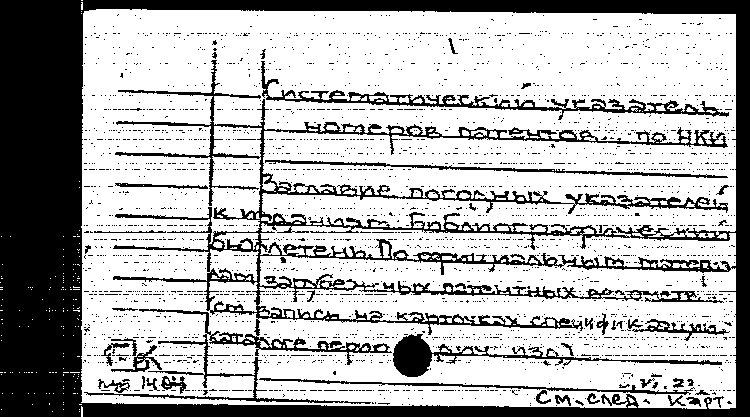 Систематический указатель
номеров патентов... по НКИ
Заглавие погодных указателей
к изданиям: Библиографический
бюллетень. По официальным матери-
лам зарубежных патентных ведомств.
(см. запись на карточках спецификации
каталоге период дич. изд.)
См. след. карт.